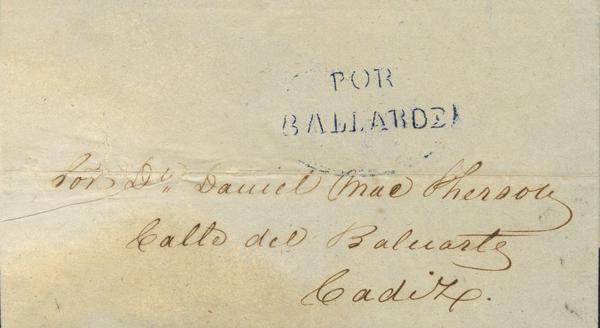 POR
BALLARDE
Sor Dn Daniel Mac Pherson
Calle del Baluarte
Cadiz.